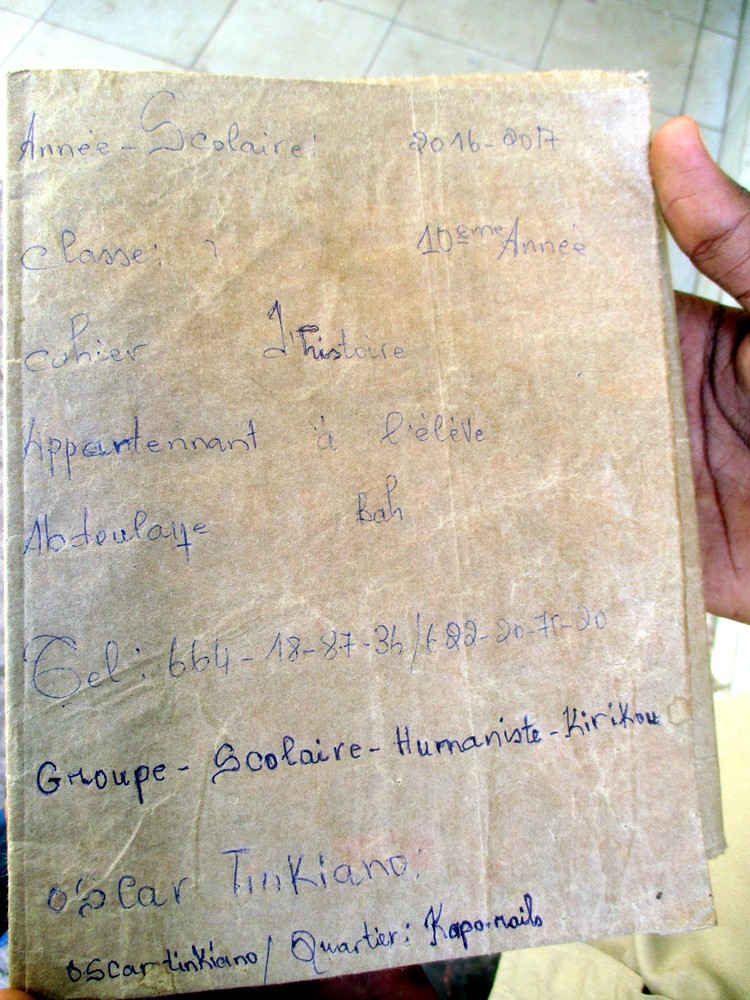 Année-Scolaire: 2016-2017
Classe: 10ème Année
Cahier d'histoire
Appartennant à l'élève
Abdoulaye Bah
Tel: 664-18-87-36/622-20-71-20
Groupe-Scolaire-Humaniste-Kirikou
Oscar Tinkiano:
oscar tinkiano/ Quartier: Kaporo-rails